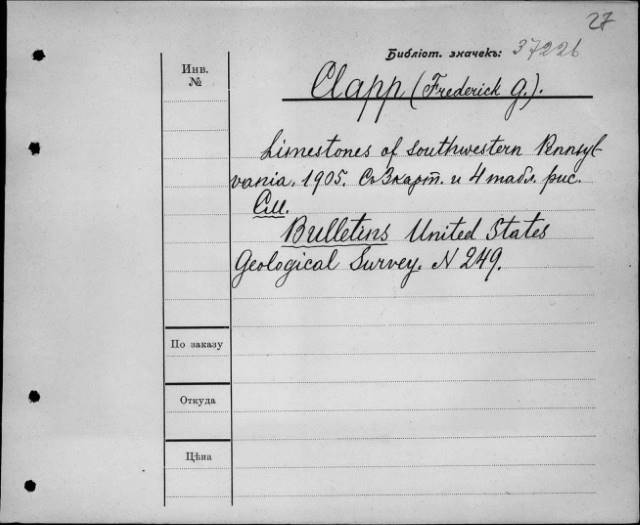 27
Библіот. значекъ: 37226
Инв.
№
Clapp (Frederick G.).
Limestones of southwestern Pennsyl-
vania. 1905. Съ 3 карт. и 4 табл. рис.
См.
Bulletins United States
Geological Survey. N 249.
По заказу
Откуда
Цѣна